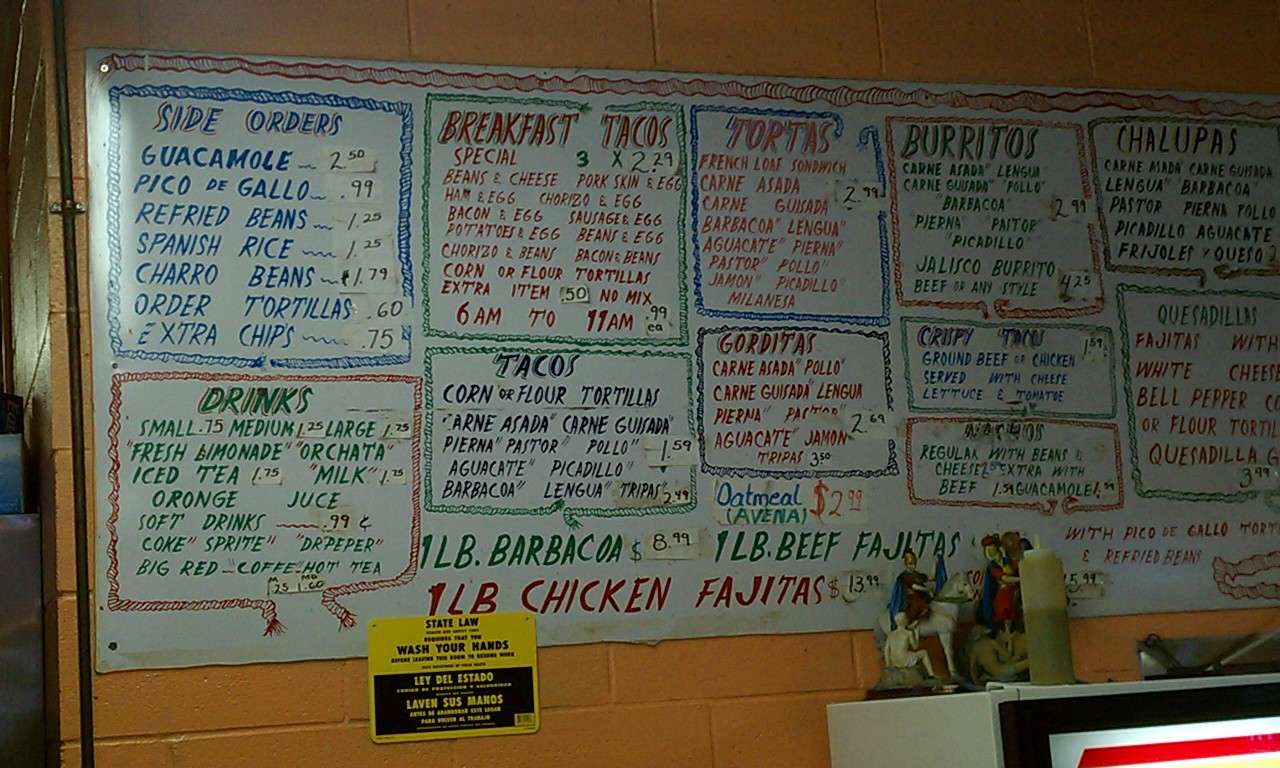 SIDE ORDERS
GUACAMOLE 2.50
PICO DE GALLO .99
REFRIED BEANS 1.25
SPANISH RICE 1.25
CHARRO BEANS 1.79
ORDER TORTILLAS .60
EXTRA CHIPS .75
DRINKS
SMALL .75 MEDIUM 1.25 LARGE 1.75
"FRESH LIMONADE" "ORCHATA"
ICED TEA 1.75 "MILK" 1.75
ORONGE JUCE
SOFT DRINKS .99 ¢
COKE" SPRITE" "DR.PEPER"
BIG RED - COFFE - HOT TEA
BREAKFAST TACOS
SPECIAL 3 X 2.29
BEANS & CHEESE PORK SKIN & EGG
HAM & EGG CHORIZO & EGG
BACON & EGG SAUSAGE & EGG
POTATOES & EGG BEANS & EGG
CHORIZO & BEANS BACON & BEANS
CORN OR FLOUR TORTILLAS
EXTRA ITEM .50 NO MIX
6 AM TO 11 AM .99 ea
TACOS
CORN OR FLOUR TORTILLAS
CARNE ASADA" CARNE GUISADA"
PIERNA" PASTOR" POLLO" 1.59
AGUACATE" PICADILLO"
BARBACOA" LENGUA" TRIPAS" 2.49
TORTAS
FRENCH LOAF SONDWICH
CARNE ASADA 2.99
CARNE GUISADA
BARBACOA" LENGUA"
AGUACATE" PIERNA"
PASTOR" POLLO"
JAMON" PICADILLO"
MILANESA
GORDITAS
CARNE ASADA" POLLO"
CARNE GUISADA" LENGUA
PIERNA" PASTOR"
AGUACATE" JAMON" 2.69
TRIPAS 3.50
Oatmeal $2.99
(AVENA)
BURRITOS
CARNE ASADA" LENGUA
CARNE GUISADA" "POLLO"
"BARBACOA" 2.99
PIERNA" "PASTOR"
"PICADILLO"
JALISCO BURRITO
BEEF OR ANY STYLE 4.25
CRISPY TACOS 1.59
GROUND BEEF OR CHICKEN
SERVED WITH CHEESE
LETTUCE & TOMATOE
NACHOS
REGULAR WITH BEANS &
CHEESE EXTRA WITH
BEEF 1.59 GUACAMOLE
CHALUPAS
CARNE ASADA" CARNE GUISADA
LENGUA" BARBACOA"
PASTOR PIERNA POLLO
PICADILLO AGUACATE
FRIJOLES Y QUESO 2
QUESADILLAS
FAJITAS WITH
WHITE CHEESE
BELL PEPPER
OR FLOUR TORTIL
QUESADILLA G
3.99
1 LB. BARBACOA $ 8.99
1 LB. BEEF FAJITAS
1 LB CHICKEN FAJITAS $ 13.99
WITH PICO DE GALLO TORT
& REFRIED BEANS
STATE LAW
REQUIRES THAT YOU
WASH YOUR HANDS
BEFORE LEAVING THIS ROOM TO RESUME WORK
LEY DEL ESTADO
LAVEN SUS MANOS
ANTES DE ABANDONAR ESTE LUGAR
PARA VOLVER AL TRABAJO